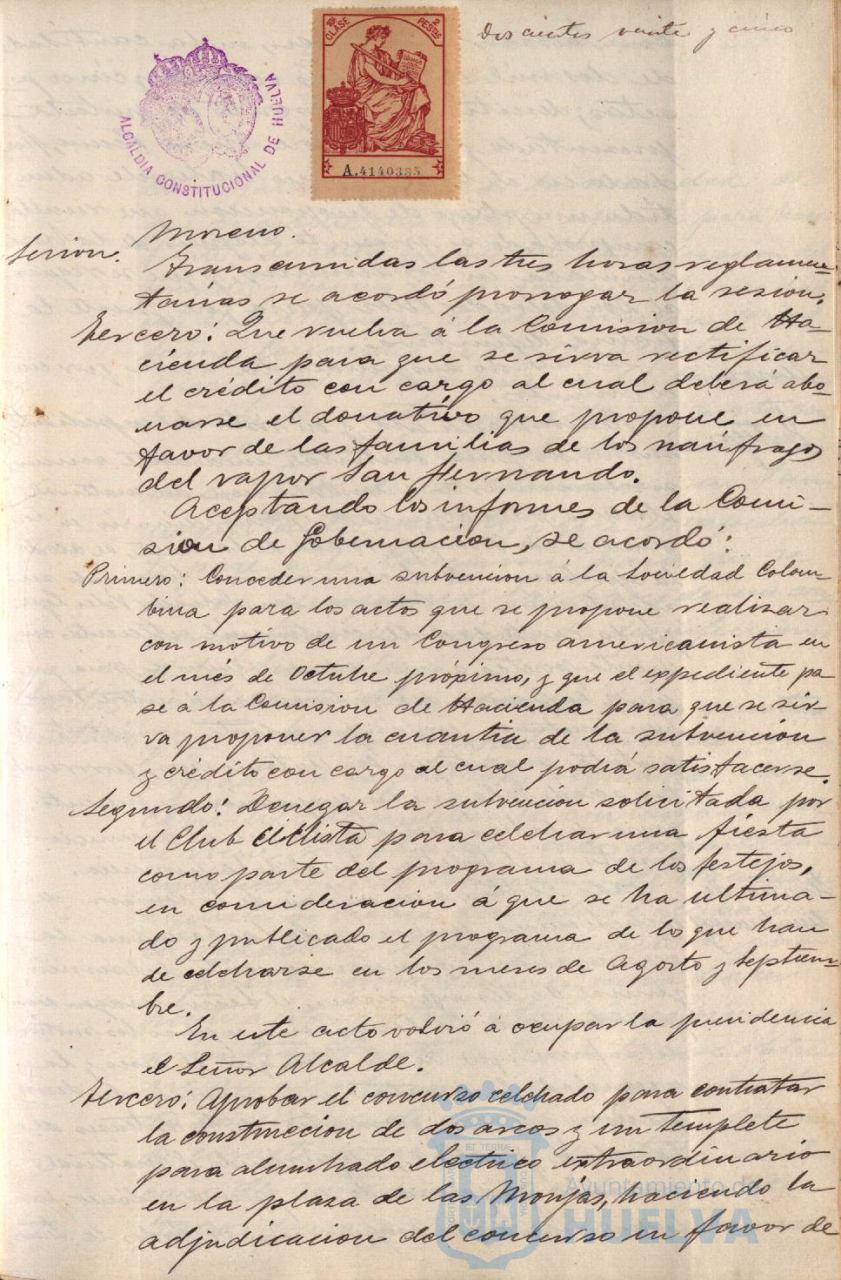 Doscientos veinte y cinco
CLASE 8ª PESETAS 2
A.4140335
ALCALDIA CONSTITUCIONAL DE HUELVA
Moreno.
Sesion.
Transcurridas las tres horas reglamen-
tarias se acordó prorrogar la sesion.
Tercero: Que vuelva á la Comision de Ha-
cienda para que se sirva rectificar
el crédito con cargo al cual deberá abo-
narse el donativo que propone en
favor de las familias de los naúfragos
del vapor San Fernando.
Aceptando los informes de la Comi-
sion de Gobernacion, se acordó:
Primero: Conceder una subvencion á la Sociedad Colom-
bina para los actos que se propone realizar
con motivo de un Congreso americanista en
el més de Octubre próximo, y que el expediente pa-
se á la Comision de Hacienda para que se sir-
va proponer la cuantia de la subvencion
y crédito con cargo al cual podrá satisfacerse.
Segundo: Denegar la subvencion solicitada por
el Club Ciclista para celebrar una fiesta
como parte del programa de los festejos,
en consideracion á que se ha ultima-
do y publicado el programa de lo que han
de celebrarse en los meses de Agosto y Septiem-
bre.
En este acto volvió á ocupar la presidencia
el Señor Alcalde.
Tercero: Aprobar el concurso celebrado para contratar
la construccion de dos arcos y un templete
para alumbrado electrico extraordinario
en la plaza de las Monjas, haciendo la
adjudicacion del concurso en favor de
Ayuntamiento de
HUELVA